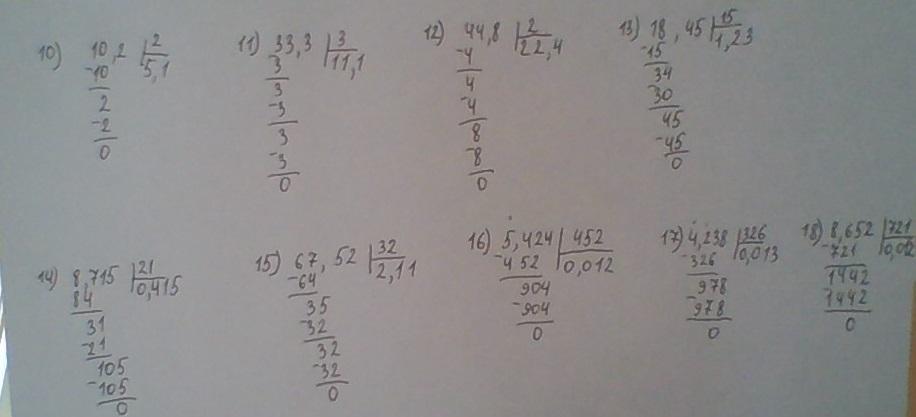 10) 10,2 | 2
-10 | 5,1
2
-2
0
11) 33,3 | 3
3 | 11,1
3
-3
3
-3
0
12) 44,8 | 2
-4 | 22,4
4
-4
8
-8
0
13) 18,45 | 15
-15 | 1,23
34
-30
45
-45
0
14) 8,715 | 21
84 | 0,415
31
-21
105
-105
0
15) 67,52 | 32
-64 | 2,11
35
-32
32
-32
0
16) 5,424 | 452
-452 | 0,012
904
-904
0
17) 4,238 | 326
-326 | 0,013
978
-978
0
18) 8,652 | 721
-721 | 0,012
1442
-1442
0